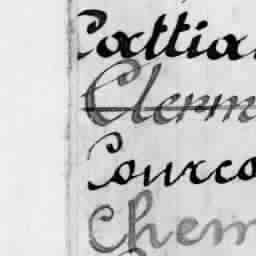 Cattia
Clerm
Cource
Chem